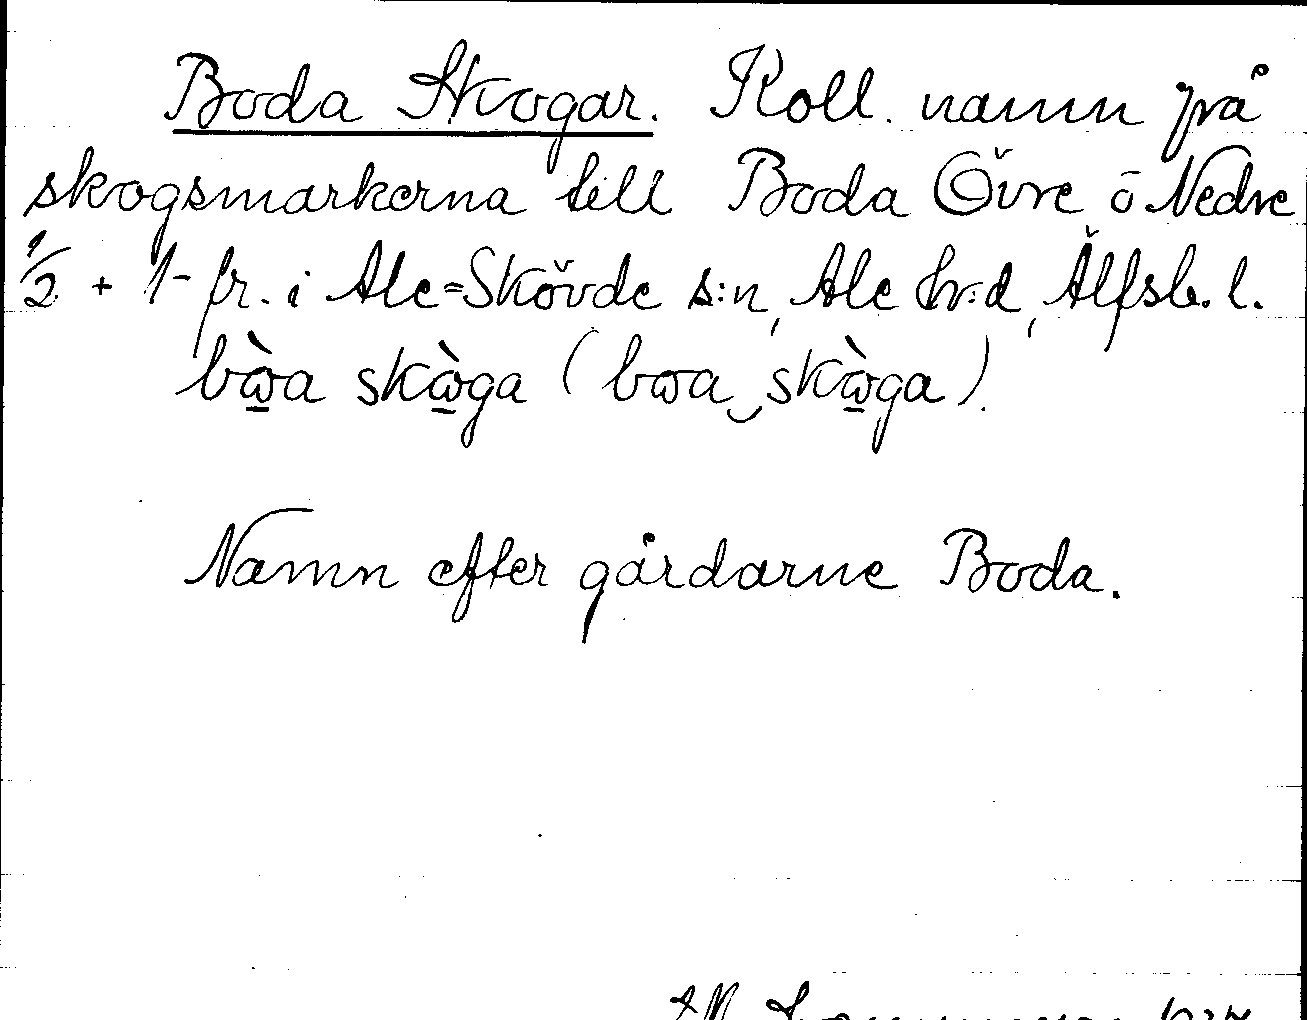 Boda Skogar. Koll. namn på
skogsmarkerna till Boda Övre ō Nedre
1/2 + 1- fr. i Ale=Skövde s:n, Ale hr:d, Älfsb. l.
bὼ̲a skὼ̲ga (bωa‿skὼ̲ga).
Namn efter gårdarne Boda.